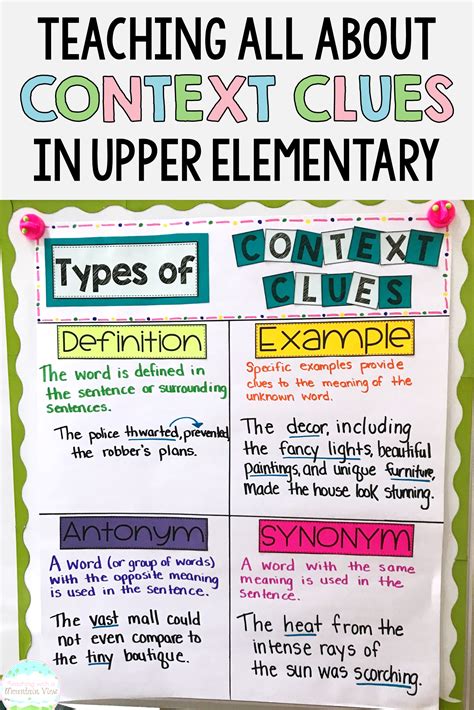 TEACHING ALL ABOUT
CONTEXT CLUES
IN UPPER ELEMENTARY
Types of
CONTEXT
CLUES
Definition
The word is defined in
the sentence or surrounding
sentences.
The police thwarted, prevented,
the robber's plans.
Example
Specific examples provide
clues to the meaning of the
unknown word.
The decor, including
the fancy lights, beautiful
paintings, and unique furniture,
made the house look stunning.
Antonym
A word (or group of words)
with the opposite meaning
is used in the sentence.
The vast mall could
not even compare to
the tiny boutique.
SYNONYM
A word with the same
meaning is used in the
sentence.
The heat from the
intense rays of
the sun was scorching.
Mountain View